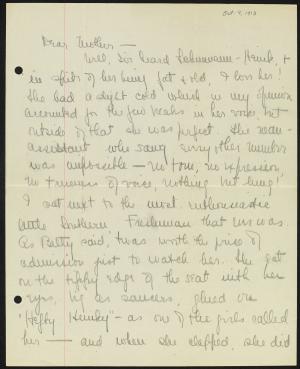 Oct. 9, 1913
Dear Mother –
Well, I've heard Schumann-Heink, &
in spite of her being fat & old, I love her!
She had a slight cold which in my opinion
accounted for the few breaks in her voice, but
outside of that she was perfect. The man-
assistant who sang every other number
was impossible – no tone, no expression,
no trueness of voice, nothing but lungs!
I sat next to the most enthusiastic
little Southern Freshman that ever was.
As Betty said, 'twas worth the price of
admission just to watch her. She sat
on the tippy edge of the seat with her
eyes, big as saucers, glued on
"Hefty Heinky" – as one of the girls called
her – and when she clapped, she did